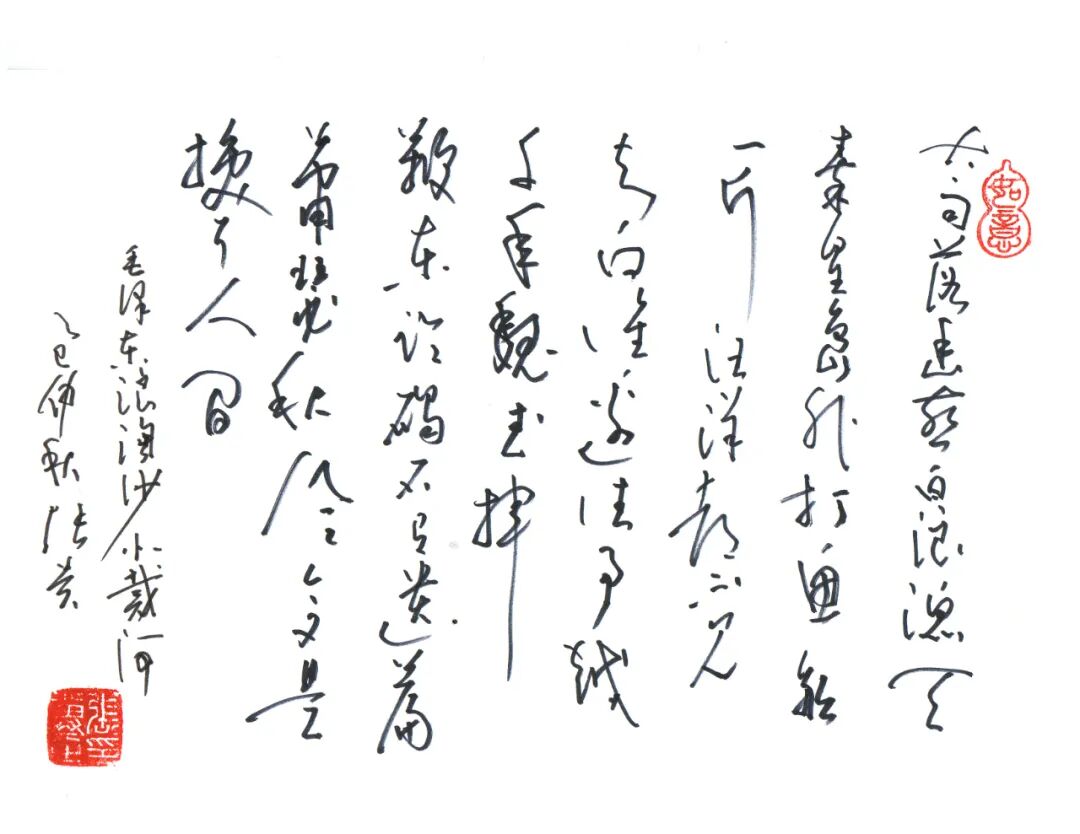 如意
大雨落幽燕白浪滔天
秦皇岛外打鱼船
一片汪洋都不见
知向谁边往事越
千年魏武挥
鞭东临碣石有遗篇
萧瑟秋风今又是
换了人间
毛泽东浪淘沙北戴河
乙巳仲秋张